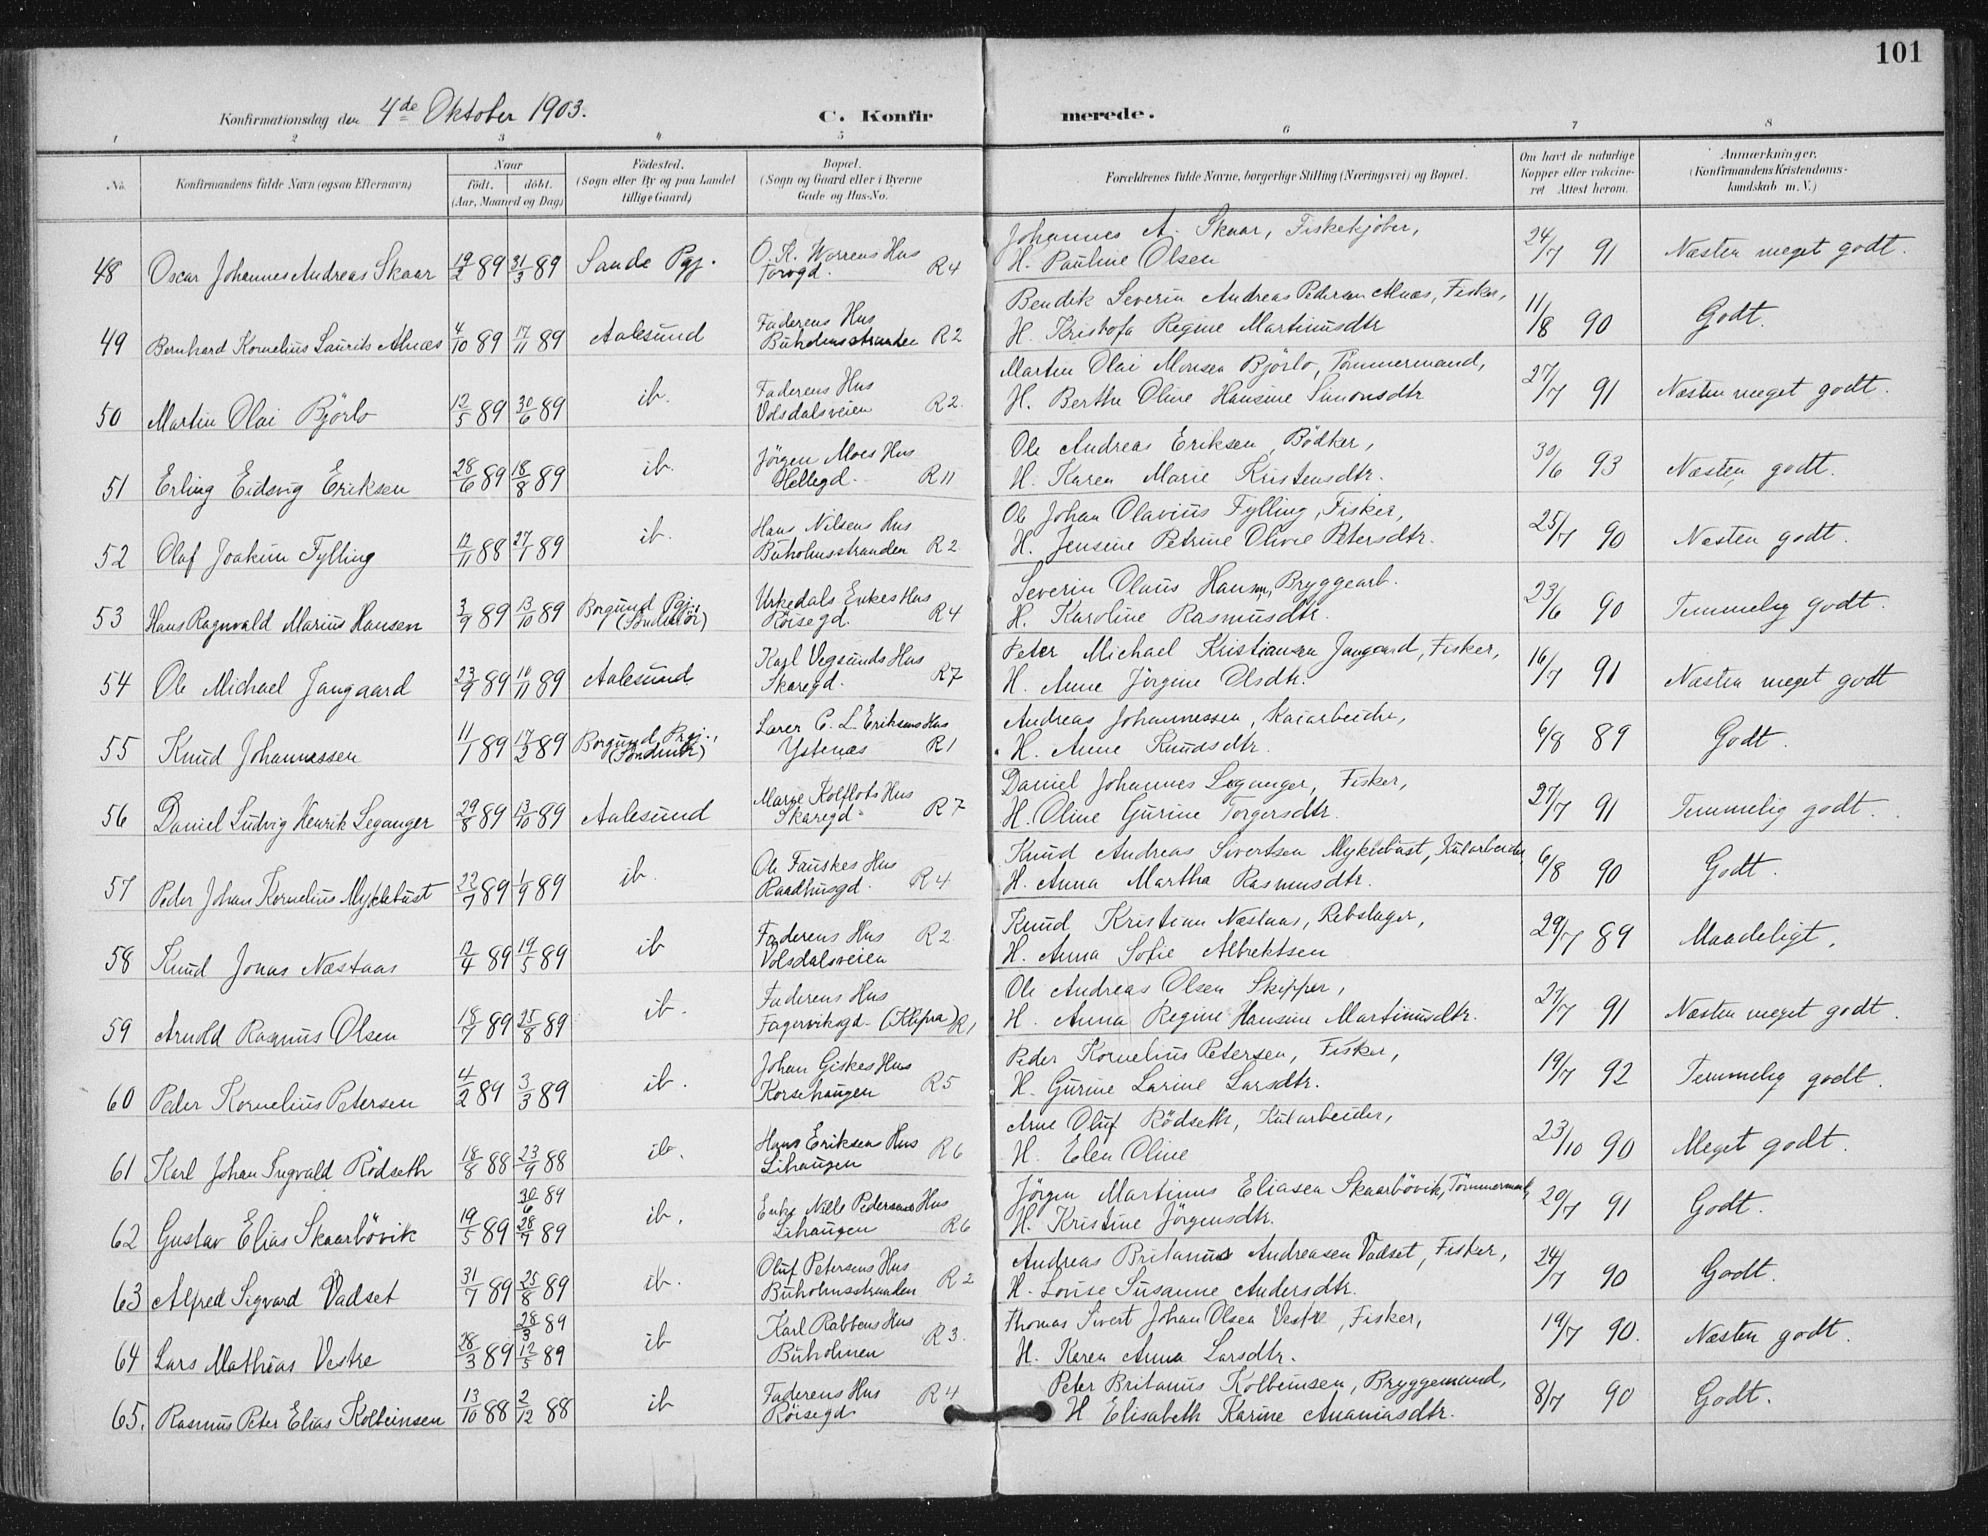 101
Konfirmationsdag den 4de Oktober 1903.
C. Konfirmerede.
1 2 3 4 5 6 7 8
No.
Konfirmandens fulde Navn (ogsaa Efternavn)
Naar
födt. döbt.
(Aar, Maaned og Dag)
Födested.
(Sogn eller By og paa Landet
tillige Gaard)
Bopæl.
(Sogn og Gaard eller i Byerne
Gade og Hus-No.
Forældrenes fulde Navne, borgerlige Stilling (Næringsvei) og Bopæl.
Om havt de naturlige
Kopper eller vakcine-
ret Attest herom.
Anmærkninger.
(Konfirmandens Kristendoms-
kundskab m. V.)
48 Oscar Johannes Andreas Skaar 19/2 89 31/3 89 Sande Pgj. O. K. Worrens Hus
Torvgd. R 4
Johannes A. Skaar, Fiskekjøber,
H. Pauline Olsen
24/7 91 Næsten meget godt.
49 Bernhard Kornelius Laurits Alnæs 4/10 89 17/11 89 Aalesund Faderens Hus
Buholmsstranden R 2
Bendik Severin Andreas Pedersen Alnæs, Fisker,
H. Kristofa Regine Martinusdtr
11/8 90 Godt.
50 Martin Olai Björlo 12/5 89 30/6 89 ib. Faderens Hus
Volsdalsveien R 2.
Martin Olai Monsen Björlo, Tömmermand,
H. Berthe Oline Hansine Simonsdtr
27/7 91 Næsten meget godt.
51 Erling Eidsvig Eriksen 28/6 89 18/8 89 ib. Jörgen Moes Hus
Hellegd. R 11
Ole Andreas Eriksen, Bödker,
H. Karen Marie Kristensdtr.
30/6 93 Næsten godt.
52 Olaf Joakim Fylling 12/11 88 27/1 89 ib. Hans Nilsens Hus
Buholmsstranden R 2
Ole Johan Olavius Fylling, Fisker,
H. Jensine Petrine Olivie Petersdtr.
25/7 90 Næsten godt.
53 Hans Ragnvald Marius Hansen 3/9 89 13/10 89 Borgund Pgj. Urkedals Enkes Hus
Röisegd. R 4
Severin Olaus Hansen, Bryggearb.
H. Karoline Rasmusdtr.
23/6 90 Temmelig godt.
54 Ole Michael Jangaard 23/9 89 10/11 89 Aalesund Karl Vegsunds Hus
Skaregd. R 7
Peter Michael Kristiansen Jangaard, Fisker,
H. Anne Jörgine Olsdtr.
16/7 91 Næsten meget godt
55 Knud Johannessen 11/1 89 17/2 89 Borgund Prgj., Lærer C. L. Eriksens Hus
Ystenæs R 1
Andreas Johannessen, Kaiarbeider,
H. Anne Knudsdtr.
6/8 89 Godt.
56 Daniel Ludvig Henrik Leganger 29/8 89 13/10 89 Aalesund Marie Kolflots Hus
Skaregd. R 7
Daniel Johannes Leganger, Fisker,
H. Oline Gurine Torgersdtr.
27/7 91 Temmelig godt.
57 Peder Johan Kornelius Myklebust 22/7 89 1/9 89 ib. Ole Fauskes Hus
Raadhusgd. R 4
Knud Andreas Sivertsen Myklebust, Kularbeider
H. Anna Martha Rasmusdtr.
6/8 90 Godt.
58 Knud Jonas Næstaas 12/4 89 19/5 89 ib Faderens Hus R 2
Volsdalsveien
Knud Kristian Næstaas, Rebslager,
H. Anna Sofie Albrektsen
29/7 89 Maadeligt.
59 Arnold Rasmus Olsen 18/7 89 25/8 89 ib. Faderens Hus
Fagerviksgd. (Klipra) R 1
Ole Andreas Olsen Skipper,
H. Anna Regine Hansine Martinusdtr.
27/7 91 Næsten meget godt.
60 Peder Kornelius Petersen 4/2 89 3/3 89 ib. Johan Giskes Hus
Korsehaugen R 5
Peder Kornelius Petersen, Fisker,
H. Gurine Larine Larsdtr.
19/7 92 Temmelig godt.
61 Karl Johan Ingvald Rödseth 18/8 88 23/9 88 ib. Hans Eriksens Hus
Lihaugen R 6
Arne Oluf Rödseth, Kularbeider,
H. Elen Oline
23/10 90 Meget godt.
62 Gustav Elias Skaarbövik 19/5 89 30/6 89
28/7 89 ib. Enke Nille Pedersens Hus
Lihaugen R 6
Jörgen Martinus Eliasen Skaarbövik, Tömmermand,
H. Kristine Jörgensdtr.
20/7 91 Godt.
63 Alfred Sigvard Vadset 31/7 89 25/8 89 ib. Oluf Petersens Hus
Buholmsstranden R 2
Andreas Britanus Andreasen Vadset, Fisker,
H. Lovise Susanne Andersdtr.
24/7 90 Godt.
64 Lars Mathias Vestre 28/3 89 28/3 89
12/5 89 ib Karl Rabbens Hus
Buholmen R 3.
Thomas Sivert Johan Olsen Vestre, Fisker,
H. Karen Anna Larsdtr.
19/7 90. Næsten godt.
65. Rasmus Peter Elias Kolbeinsen 13/10 88 2/12 88 ib Faderens Hus
Röisegd R 4
Peter Britanus Kolbeinsen, Bryggemand,
H Elisabeth Karine Ananiasdtr.
8/7 90 Godt.